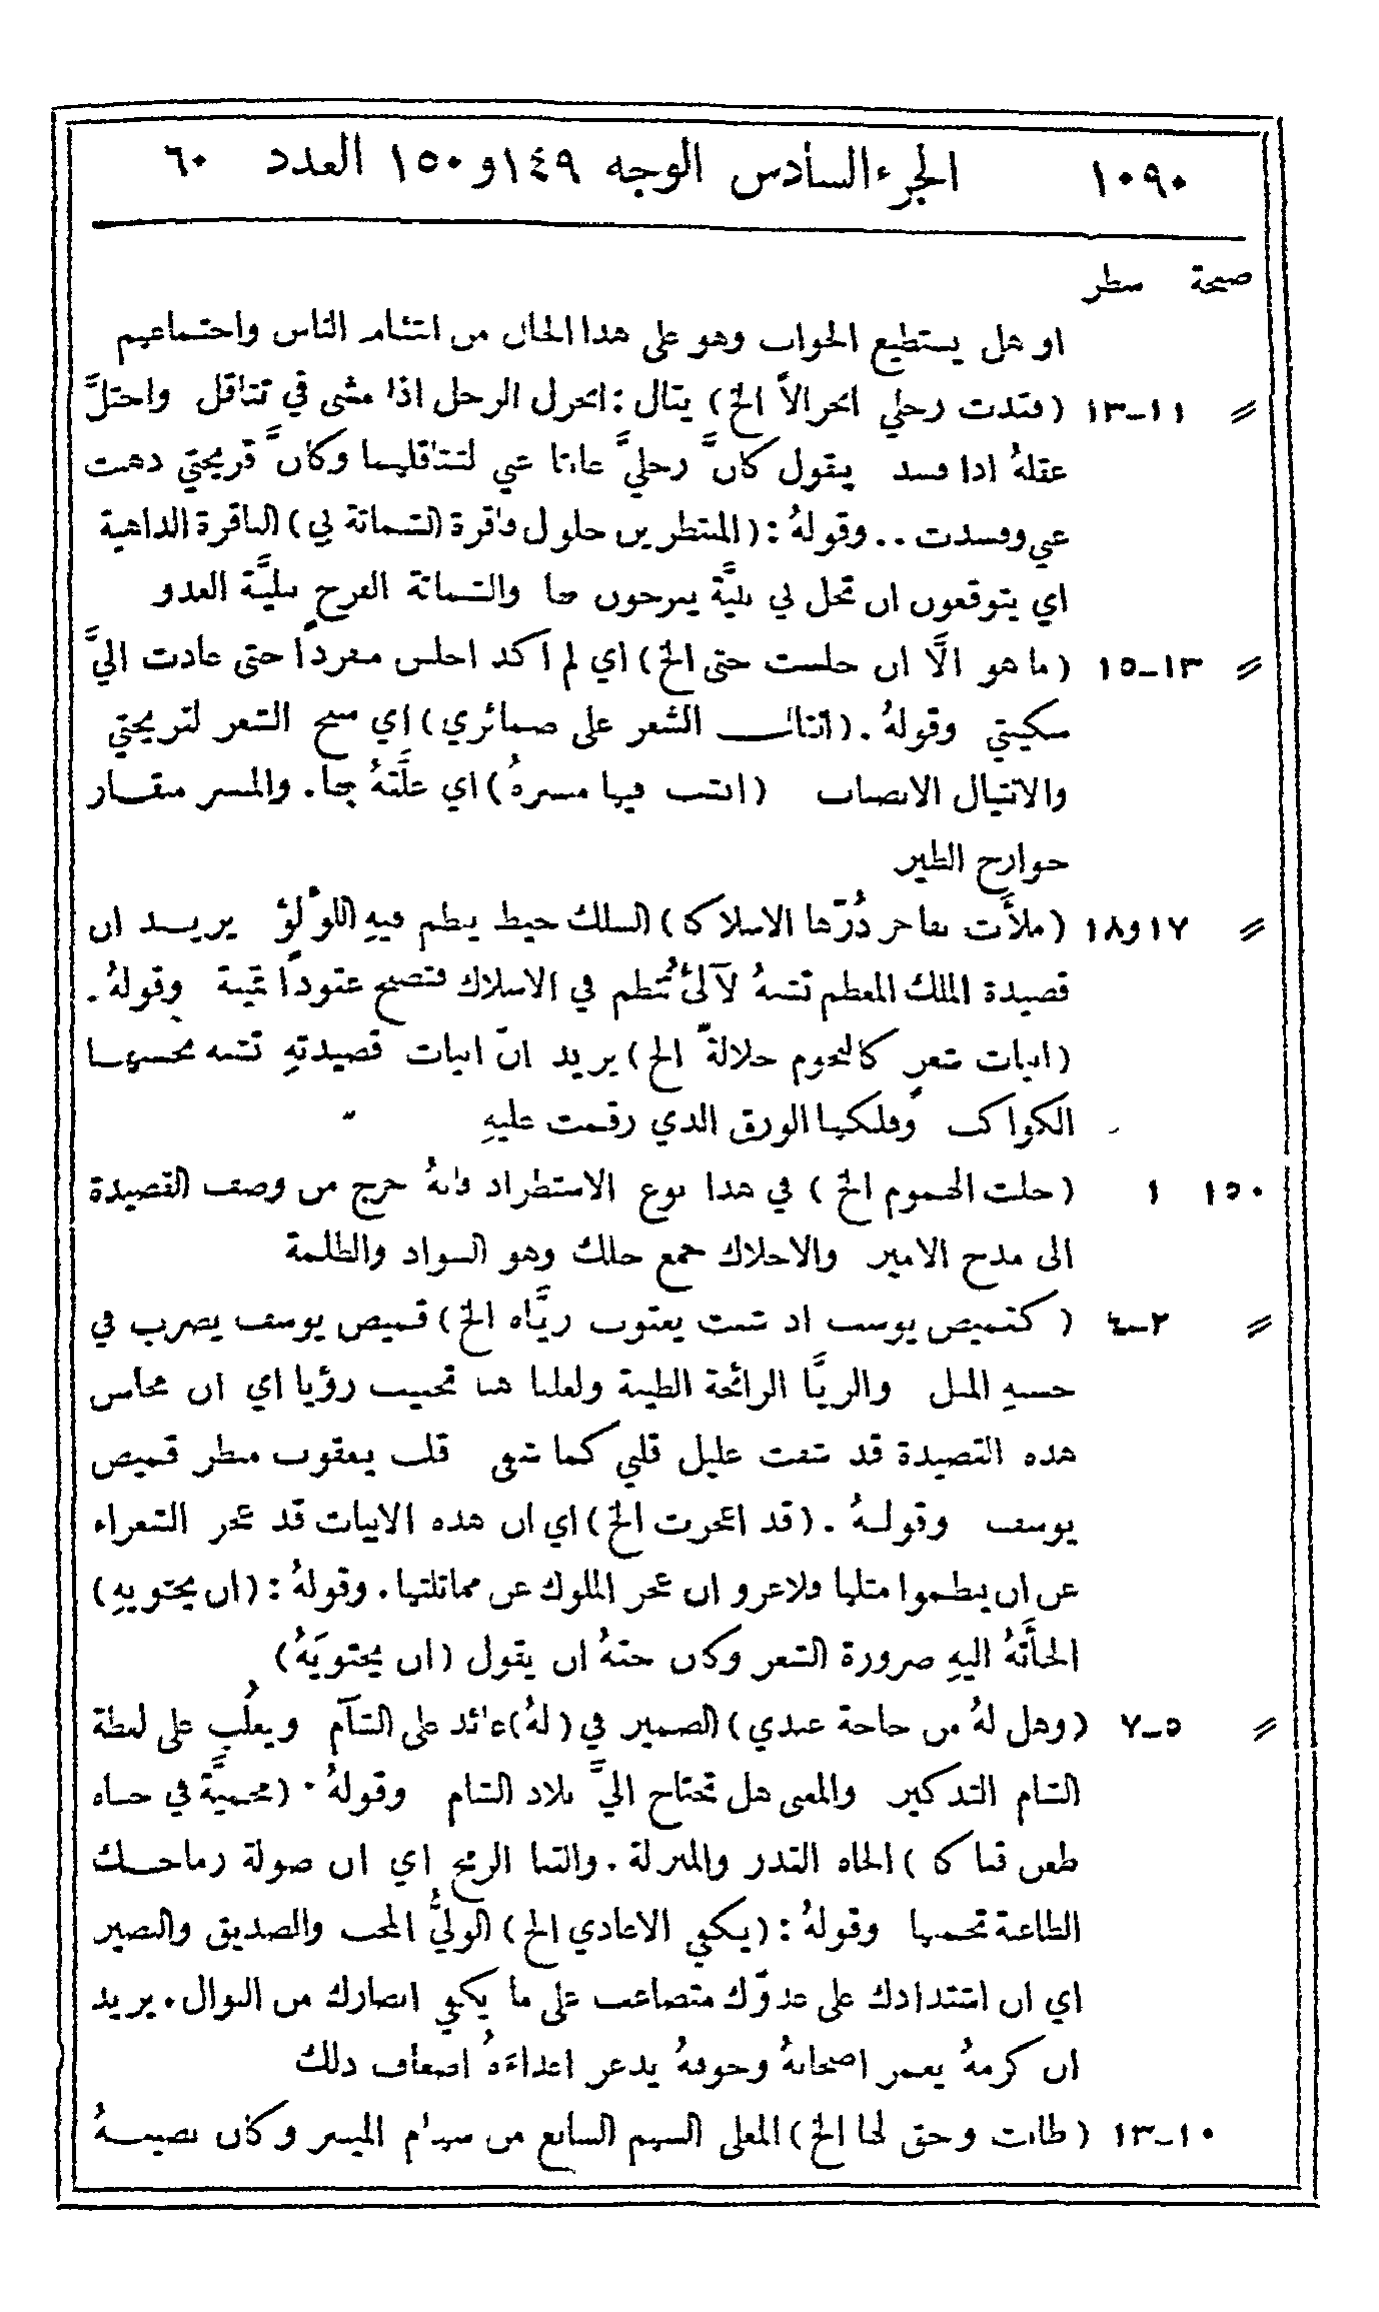 ١٠٩٠ الجزء السادس الوجه ١٤٩ و ١٥٠ العدد ٦٠
صفحة سطر
او هل يستطيع الجواب وهو على هذا الحال من التئام الناس واجتماعهم
〃 ١١-١٣ (فقدت رجلي انخزالاً الخ) يقال: انخزل الرجل اذا مشى في تثاقل واختلَّ
عقلهُ اذا فسد يقول كانَّ رجليَّ غابتا عني لتثاقلهما وكانَّ قريحتي ذهبت
عني وفسدت .. وقولهُ: (المنتظرين حلول فاقرة الشماتة لي) الفاقرة الداهية
اي يتوقعون ان تحل لي بليَّة يفرحون بها والشماتة الفرح ببليَّة العدو
〃 ١٣-١٥ (ما هو الَّا ان جلست حتى الخ) اي لم اكد اجلس مفرداً حتى عادت اليَّ
سكينتي وقولهُ. (انثالت الشعر على ضمائري) اي سبح الشعر لقريحتي
والانثيال الانصباب (انشب فيها منسرهُ) اي علَّقهُ بها. والمنسر منقار
جوارح الطير
〃 ١٧ و١٨ (ملأَت بفاخر دُرّها الاسلاكا) السلك خيط ينظم فيهِ اللؤْلؤ يريد ان
قصيدة الملك المعظم تشبهُ لآلئ تُنظم في الاسلاك فتصبح عقوداً ثمينة وقولهُ.
(ابيات شعرٍ كالنجوم جلالةً الخ) يريد انّ ابيات قصيدتهِ تشبه بحسنها
الكواكب وفلكها الورق الذي رقمت عليهِ
١٥٠ ١ (جلت الهموم الخ) في هذا نوع الاستطراد فانهُ خرج من وصف القصيدة
الى مدح الامير والاحلاك جمع حلك وهو السواد والظلمة
〃 ٢-٤ (كقميص يوسف اذ شفت يعقوب ريَّاه الخ) قميص يوسف يضرب في
حسنهِ المثل والريَّا الرائحة الطيبة ولعلها هنا تخفيف رؤيا اي ان محاسن
هذه القصيدة قد شفت غليل قلبي كما شفى قلب يعقوب منظر قميص
يوسف وقولهُ. (قد اعجزت الخ) اي ان هذه الابيات قد عجز الشعراء
عن ان ينظموا مثلها فلا غرو ان عجز الملوك عن مماثلتها. وقولهُ: (ان يحتويهِ)
الجأَتهُ اليهِ ضرورة الشعر وكان حقهُ ان يقول (ان يحتويَهُ)
〃 ٥-٧ (وهل لهُ من حاجة عندي) الضمير في (لهُ) عائد على الشآم ويغلُب على لفظة
الشام التذكير والمعنى هل تحتاج اليَّ بلاد الشام وقولهُ. (محميَّة في جاه
طعن قناكا) الجاه القدر والمنزلة. والقنا الرمح اي ان صولة رماحك
الطاعنة تحميها وقولهُ: (يكفي الاعادي الخ) الوليُّ المحب والصديق والنصير
اي ان اشتدادك على عدوّك متضاعف على ما يكفي انصارك من النوال. يريد
ان كرمهُ يغمر اصحابهُ وخوفهُ يذعر اعداءَهُ اضعاف ذلك
١٠-١٣ (طابت وحق لها الخ) المعلى السهم السابع من سهام الميسر وكان نصيبهُ